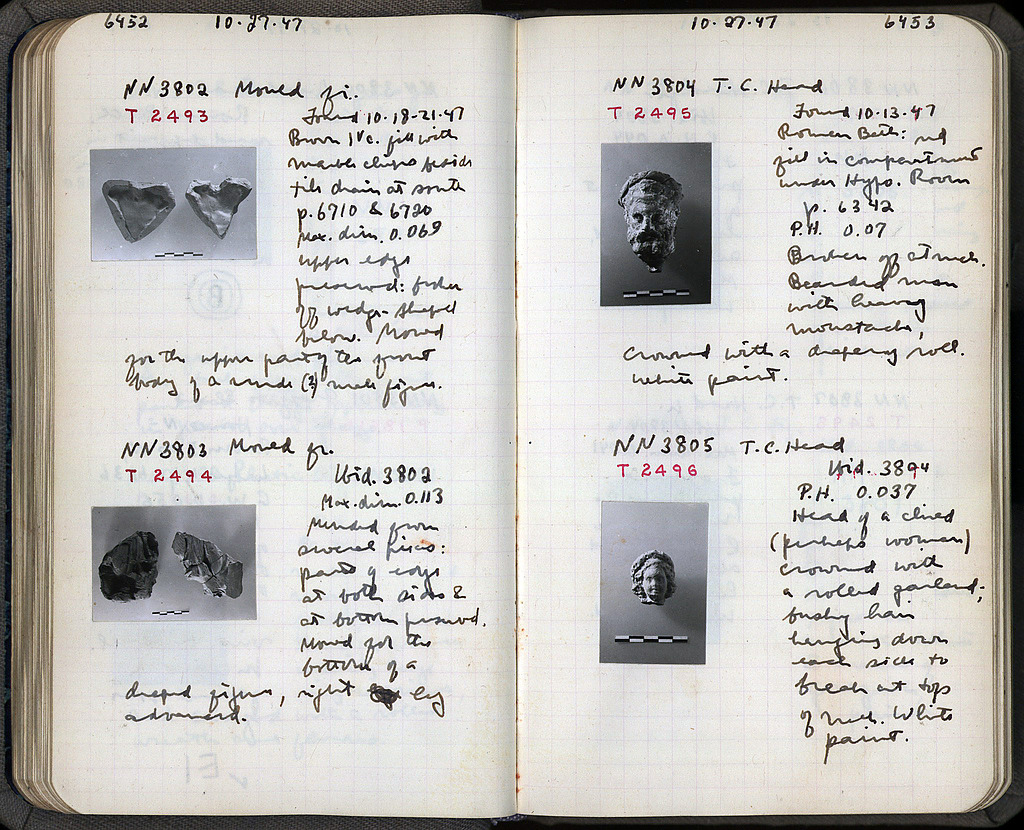 6452 10-27-47
NN 3802 Mould fr.
T 2493
Found 10-18-21-47
Brown 1st c. fill with
marble chips beside
tile drain at south
p. 6710 & 6720
Max. dim. 0.069
upper edge
preserved: broken
off wedge-shaped
below. Mould
for the upper part of the front
body of a nude (?) male figure.
NN 3803 Mould fr.
T 2494
Ibid. 3802
Max. dim. 0.113
Mended from
several pieces:
parts of edge
at both sides &
at bottom preserved.
Mould for the
bottom of a
draped figure, right leg
advanced.
10-27-47 6453
NN 3804 T.C. Head
T 2495
Found 10-13-47
Roman Bath: red
fill in compartment
under Hypo. Room
p. 6342
P.H. 0.07
Broken off at neck.
Bearded man
with heavy
moustache,
crowned with a drapery roll.
White paint.
NN 3805 T.C. Head
T 2496
Ibid. 3804
P.H. 0.037
Head of a
(perhaps woman)
crowned with
a rolled garland;
bushy hair
hanging down
each side to
break at top
of neck. White
paint.